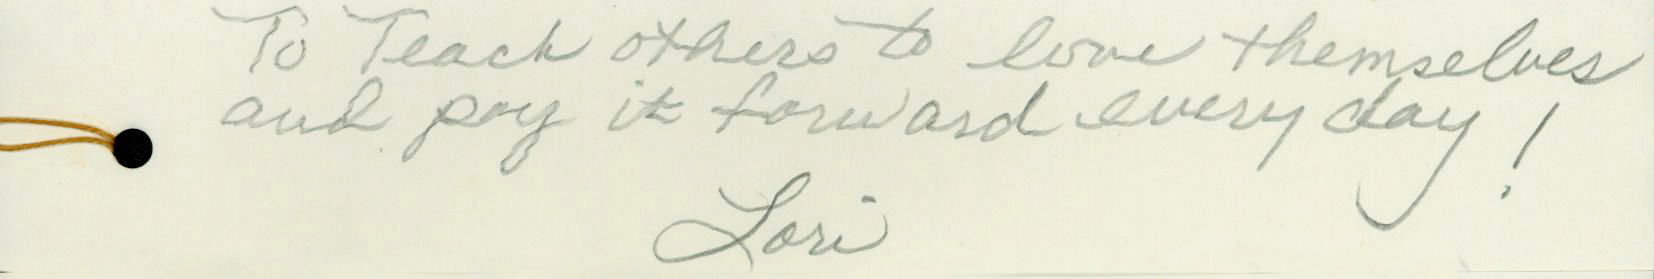 To Teach others to love themselves
and pay it forward every day!
Lori